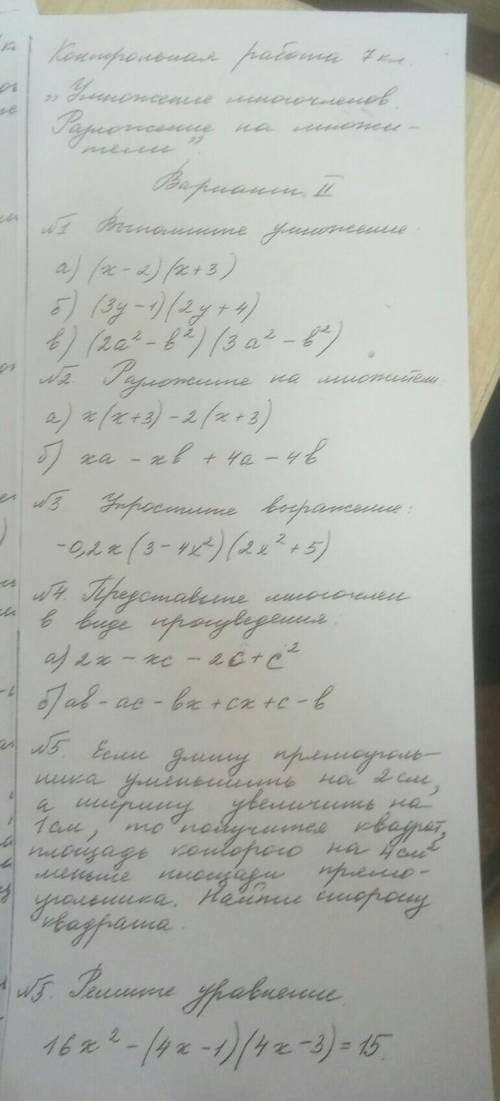 Контрольная работа 7 кл.
„Умножение многочленов.
Разложение на множи-
тели".
Вариант II
№1 Выполните умножение
а) (x-2)(x+3)
б) (3y-1)(2y+4)
в) (2a²-b²)(3a²-b²)
№2. Разложите на множители
а) x(x+3)-2(x+3)
б) xa-xb+4a-4b
№3. Упростите выражение:
-0,2x(3-4x²)(2x²+5)
№4. Представьте многочлен
в виде произведения:
а) 2x-xc-2c+c²
б) ab-ac-bx+cx+c-b
№5. Если длину прямоуголь-
ника уменьшить на 2 см,
а ширину увеличить на
1 см, то получится квадрат,
площадь которого на 4 см²
меньше площади прямо-
угольника. Найти сторону
квадрата.
№5. Решите уравнение
16x²-(4x-1)(4x-3)=15.